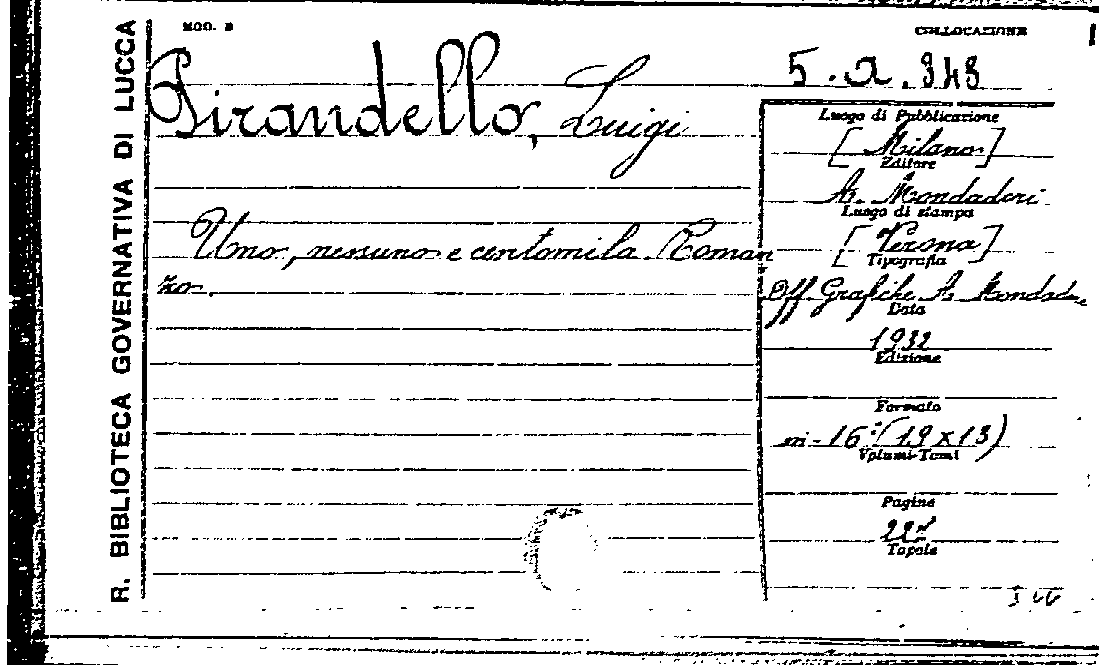 R. BIBLIOTECA GOVERNATIVA DI LUCCA
MOD. B
COLLOCAZIONE
5.a.343
Pirandello, Luigi
Uno, nessuno e centomila. Roman
zo.
Luogo di Pubblicazione
[Milano]
Editore
A. Mondadori
Luogo di stampa
[Verona]
Tipografia
Off. Grafiche A. Mondado
Data
1932
Edizione
Formato
in-16°(19x13)
Volumi-Tomi
Pagine
Tavole